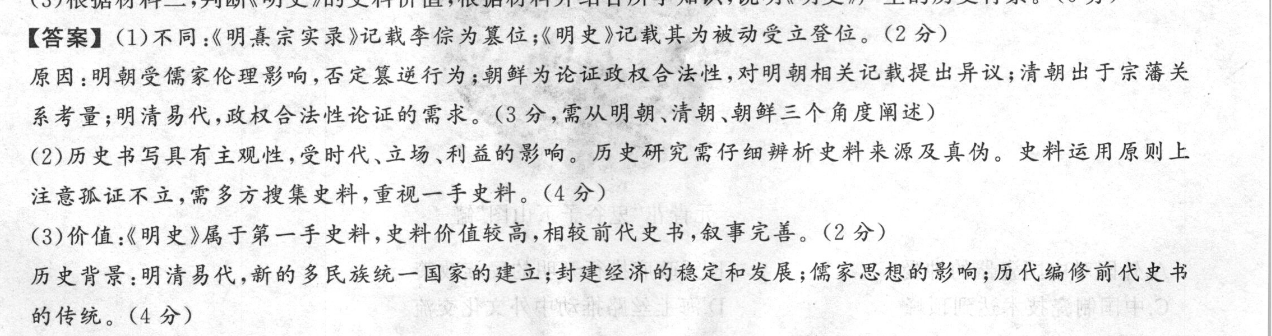 【答案】(1)不同:《明熹宗实录》记载李倧为篡位;《明史》记载其为被动受立登位。(2分)
原因:明朝受儒家伦理影响,否定篡逆行为;朝鲜为论证政权合法性,对明朝相关记载提出异议;清朝出于宗藩关
系考量;明清易代,政权合法性论证的需求。(3分,需从明朝、清朝、朝鲜三个角度阐述)
(2)历史书写具有主观性,受时代、立场、利益的影响。历史研究需仔细辨析史料来源及真伪。史料运用原则上
注意孤证不立,需多方搜集史料,重视一手史料。(4分)
(3)价值:《明史》属于第一手史料,史料价值较高,相较前代史书,叙事完善。(2分)
历史背景:明清易代,新的多民族统一国家的建立;封建经济的稳定和发展;儒家思想的影响;历代编修前代史书
的传统。(4分)